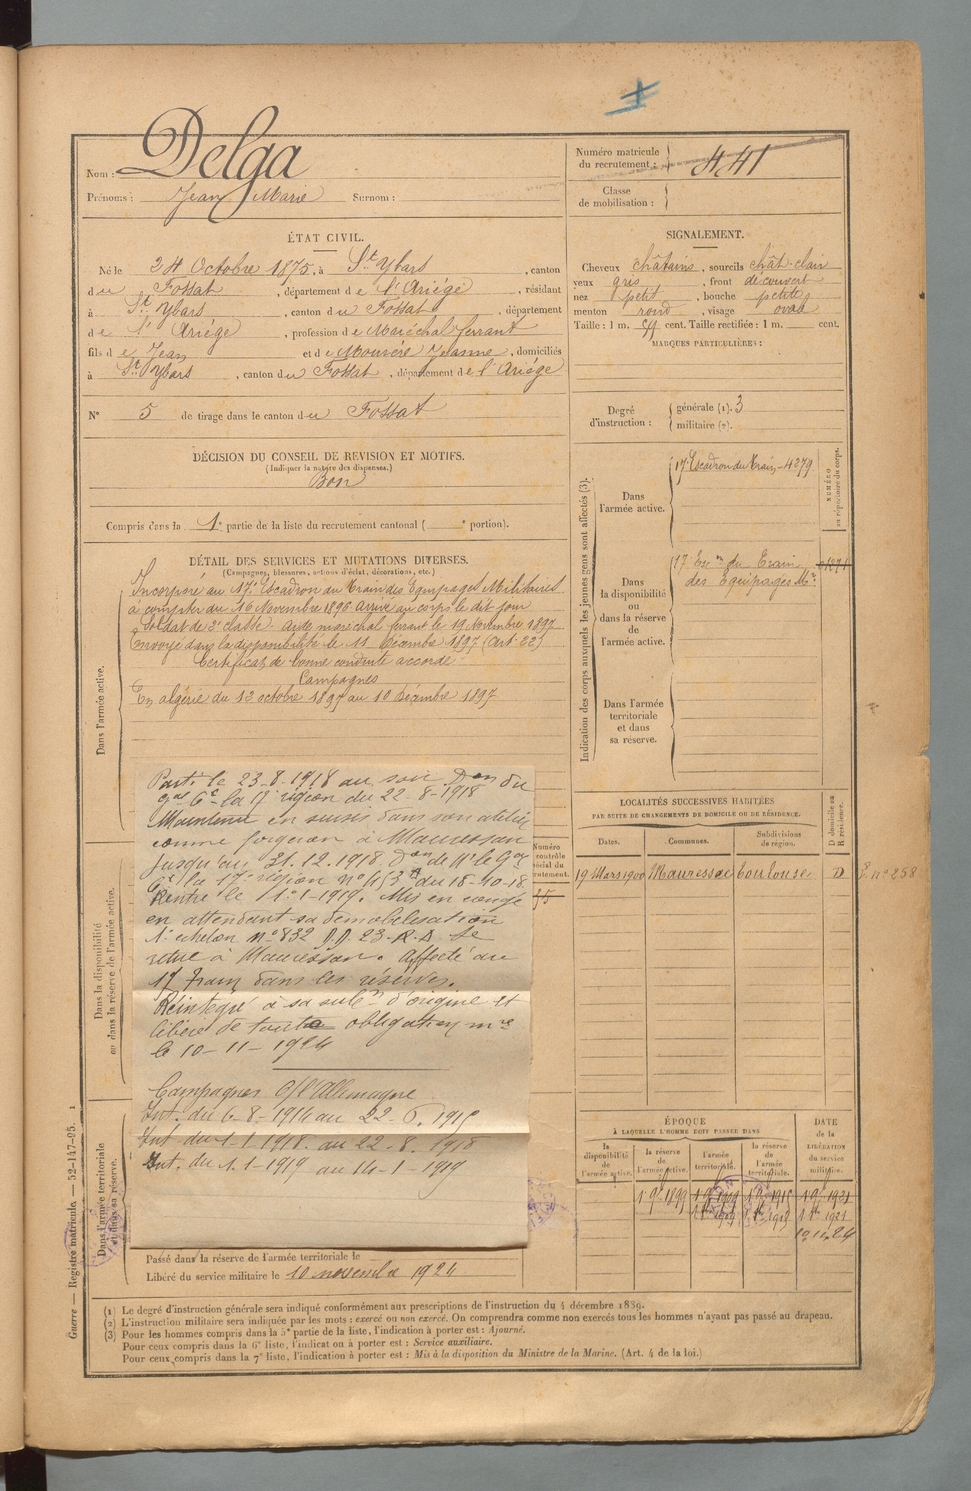 Nom : Delga
Prénoms : Jean Marie Surnom :
Numéro matricule
du recrutement : 441
Classe
de mobilisation :
ÉTAT CIVIL.
Né le 24 Octobre 1875, à St Ybars, canton
du Fossat, département de l'Ariége, résidant
à St Ybars, canton du Fossat, département
de l'Ariége, profession de Maréchal ferrant
fils de Jean et de Jeanne, domiciliés
à St Ybars, canton du Fossat, département de l'Ariége
N° 5 de tirage dans le canton du Fossat
DÉCISION DU CONSEIL DE REVISION ET MOTIFS.
(Indiquer la nature des dispenses.)
Bon
Compris dans la 1e partie de la liste du recrutement cantonal ( e portion).
SIGNALEMENT.
Cheveux châtains, sourcils chât-clair
yeux gris, front découvert
nez petit, bouche petite
menton rond, visage oval
Taille : 1 m. cent. Taille rectifiée : 1 m. cent.
MARQUES PARTICULIÈRES :
Degré
d'instruction :
générale (1). 3
militaire (2).
Indication des corps auxquels les jeunes gens sont affectés (3).
Dans
l'armée active.
17e Escadron du Train - 4279
NUMÉRO
au répertoire du corps.
Dans
la disponibilité
ou
dans la réserve
de
l'armée active.
17e Eson du Train
des Equipages Mres
Dans l'armée
territoriale
et dans
sa réserve.
DÉTAIL DES SERVICES ET MUTATIONS DIVERSES.
(Campagnes, blessures, actions d'éclat, décorations, etc.)
Dans l'armée active.
Incorporé au 17e Escadron du Train des Equipages Militaires
à compter du 16 Novembre 1896 Arrivé au corps le dit jour
Soldat de 2e classe. Aide maréchal ferrant le 19 Novembre 1897
Envoyé dans la disponibilité le 11 Décembre 1897 (Art. 22)
Certificat de bonne conduite accordé
Campagnes
En algérie du 12 octobre 1897 au 10 Décembre 1897
Parti le 23-8-1918 au soir Don du
gal Ct la 17 région du 22-8-1918
Maintenu en sursis dans son atelier
comme forgeron à Mauressac
Jusqu'au 31.12.1918. Don de Mr le Gal
Ct la 17e région n° du 18-10-18.
Rentré le 1-1919. Mis en congé
en attendant sa démobilisation
1e échelon n° 832 23-R.D. Se
retire à Mauressac. Affecté au
17 Train dans les réserves.
Réintegré à sa subon d'origine et
libéré de toute obligation mre
le 10-11-1924
Campagnes c/ l'Allemagne
Int. du 6-8-1914 au
Int du 1-1-1918. au 22-8.1918
Int. du 1.1-1919 au 14-1-1919
Dans la disponibilité
ou dans la réserve de l'armée active.
Dans l'armée territoriale
et dans sa réserve.
Numéro
LOCALITÉS SUCCESSIVES HABITÉES
PAR SUITE DE CHANGEMENTS DE DOMICILE OU DE RÉSIDENCE.
Dates. Communes. Subdivisions
de région.
D domicile ou
R résidence.
19 Mars 1900 Mauressac Toulouse D n° 258
ÉPOQUE
À LAQUELLE L'HOMME DOIT PASSER DANS
la
disponibilité
de
l'armée active.
la réserve
de
l'armée active.
l'armée
territoriale.
la réserve
de
l'armée
territoriale.
DATE
de la
LIBÉRATION
du service
militaire.
Passé dans la réserve de l'armée territoriale le
Libéré du service militaire le 10 novembre 1924
(1) Le degré d'instruction générale sera indiqué conformément aux prescriptions de l'instruction du 4 décembre 1889.
(2) L'instruction militaire sera indiquée par les mots : exercé ou non exercé. On comprendra comme non exercés tous les hommes n'ayant pas passé au drapeau.
(3) Pour les hommes compris dans la 5e partie de la liste, l'indication à porter est : Ajourné.
Pour ceux compris dans la 6e liste, l'indication à porter est : Service auxiliaire.
Pour ceux compris dans la 7e liste, l'indication à porter est : Mis à la disposition du Ministre de la Marine. (Art. 4 de la loi.)
Guerre — Registre matricule. — 52-147-95. 1